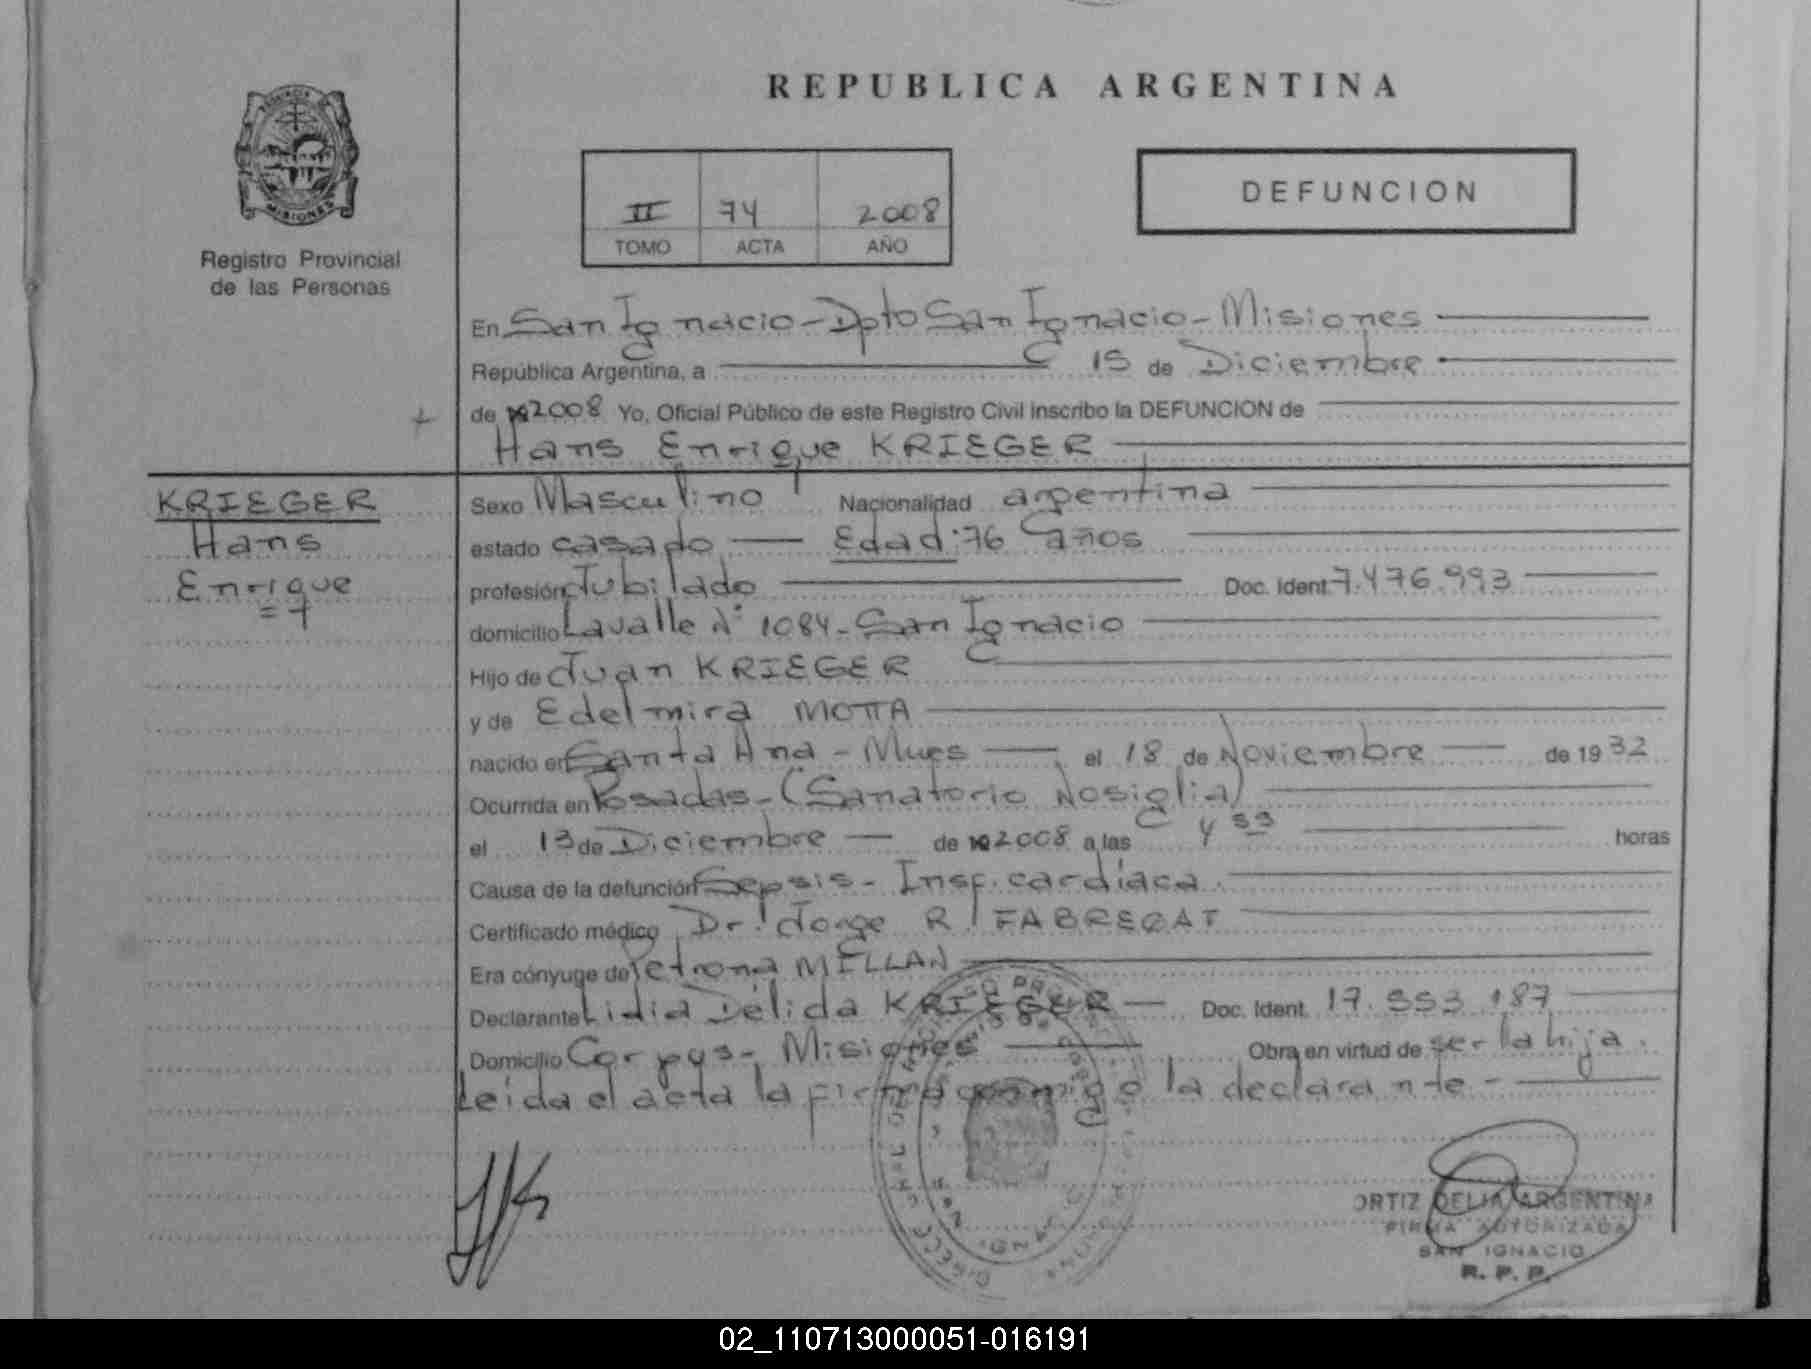 REPUBLICA ARGENTINA
MISIONES
Registro Provincial
de las Personas
II 74 2008
TOMO ACTA AÑO
DEFUNCION
En San Ignacio - Dpto San Ignacio - Misiones
República Argentina, a 15 de Diciembre
de 2008 Yo, Oficial Público de este Registro Civil inscribo la DEFUNCION de
Hans Enrique KRIEGER
KRIEGER
Hans
Enrique
Sexo Masculino Nacionalidad argentina
estado casado Edad: 76 años
profesión Jubilado Doc. Ident. 7.476.993
domicilio Lavalle N° 1084 - San Ignacio
Hijo de Juan KRIEGER
y de Edelmira MOTTA
nacido en Santa Ana - Mnes el 18 de Noviembre de 1932
Ocurrida en Posadas - (Sanatorio Nosiglia)
el 13 de Diciembre de 2008 a las horas
Causa de la defunción Sepsis - Insf. cardíaca.
Certificado médico Dr. Jorge R. FABREGAT
Era cónyuge de Petrona MILLAN
Declarante Lidia Délida KRIEGER Doc. Ident. 17.553.187
Domicilio Corpus - Misiones Obra en virtud de ser la hija.
Leída el acta la firma conmigo la declarante -
ORTIZ DELIA ARGENTINA
FIRMA AUTORIZADA
SAN IGNACIO
R. P. P.
02_110713000051-016191